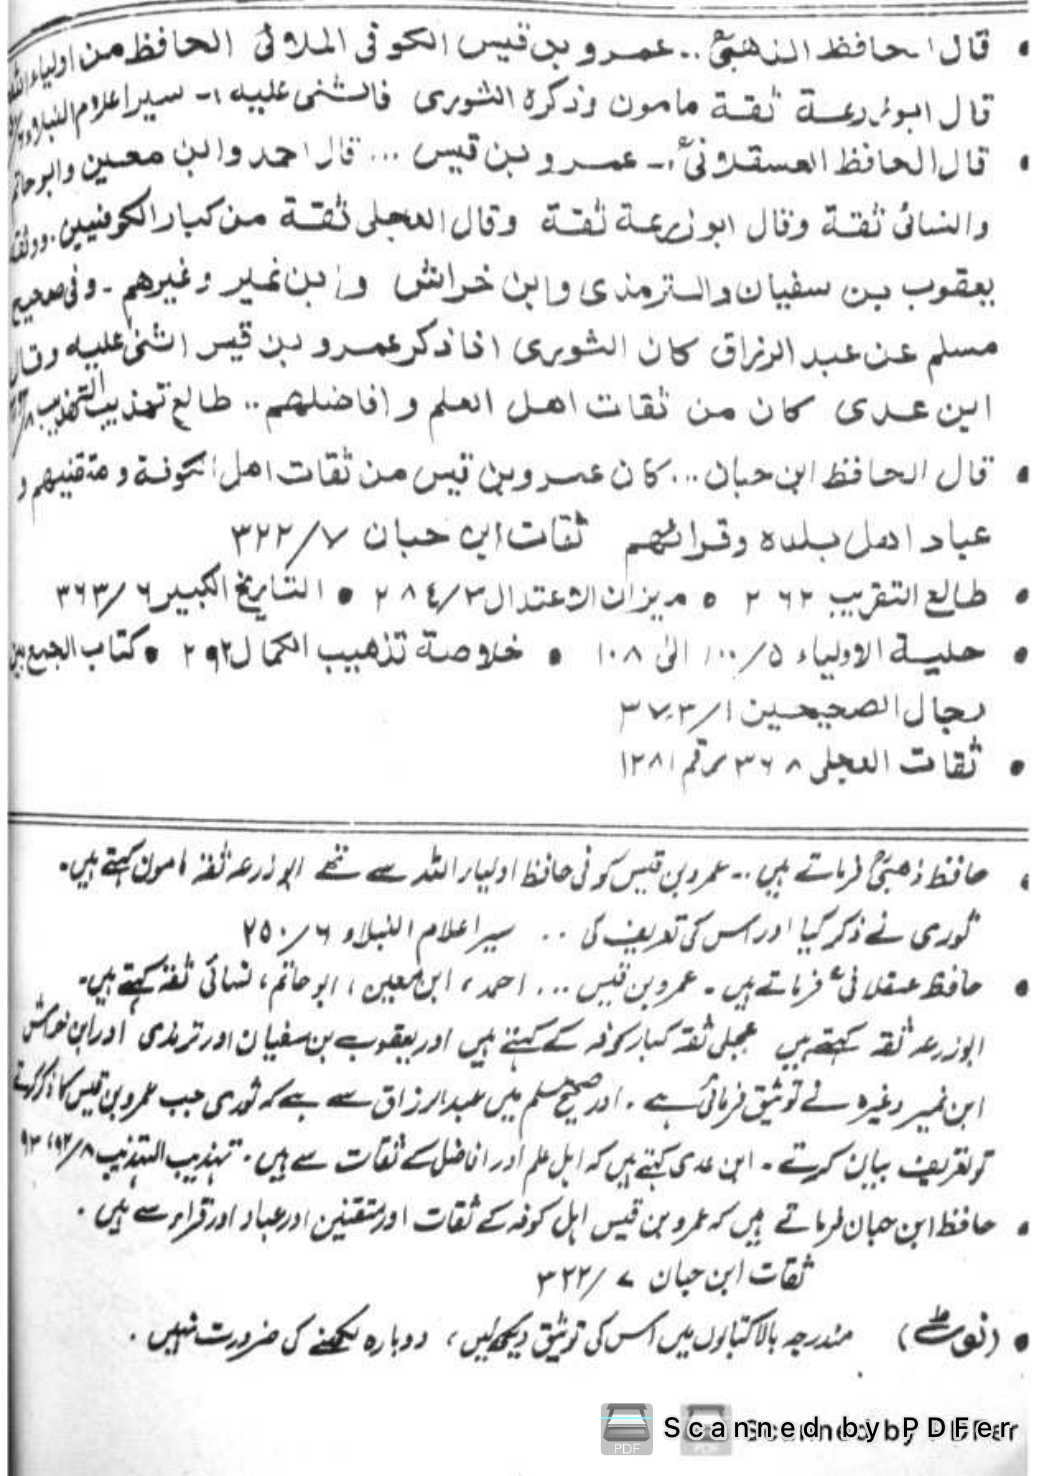 • قال الحافظ الذهبیؒ .. عمرو بن قیس الکوفی الملائی الحافظ من اولیاء اللہ
قال ابو زرعة ثقة مامون وذکره الثوری فاثنی علیه ۔ سیر اعلام النبلاء
• قال الحافظ العسقلانیؒ ۔ عمرو بن قیس ... قال احمد وابن معین وابو حاتم
والنسائی ثقة وقال ابو زرعة ثقة وقال العجلی ثقة من کبار الکوفیین . ووثقه
یعقوب بن سفیان والترمذی وابن خراش وابن نمیر وغیرهم ۔ وفی صحیح
مسلم عن عبد الرزاق کان الثوری اذا ذکر عمرو بن قیس اثنی علیه وقال
ابن عدی کان من ثقات اهل العلم وافاضلهم .. طالع تهذیب التهذیب
• قال الحافظ ابن حبان ... کان عمرو بن قیس من ثقات اهل الکوفة ومتقنیهم و
عباد اهل بلده وقرائهم ثقات ابن حبان ۷/۳۲۲
• طالع التقریب ۲۶۲ • میزان الاعتدال ۳/۲۸٤ • التاریخ الکبیر ۶/۳۶۳
• حلیة الاولیاء ۵/۱۰۰ الی ۱۰۸ • خلاصة تذهیب الکمال ۲۹۲ • کتاب الجمع بین
رجال الصحیحین ۱/۳۷۳
• ثقات العجلی ۳۶۸ رقم ۱۲۸۱
• حافظ ذهبیؒ فرماتے ہیں .. عمرو بن قیس کوفی حافظ اولیاء اللہ سے تھے ابو زرعہ ثقہ مامون کہتے ہیں۔
ثوری نے ذکر کیا اور اس کی تعریف کی .. سیر اعلام النبلاء ۶/۲۵۰
• حافظ عسقلانیؒ فرماتے ہیں ۔ عمرو بن قیس ... احمد، ابن معین، ابو حاتم، نسائی ثقہ کہتے ہیں۔
ابو زرعہ ثقہ کہتے ہیں عجلی ثقہ کبار کوفہ کے کہتے ہیں اور یعقوب بن سفیان اور ترمذی اور ابن خراش
ابن نمیر وغیرہ نے توثیق فرمائی ہے ۔ اور صحیح مسلم میں عبدالرزاق سے ہے کہ ثوری جب عمرو بن قیس کا ذکر کرتے
تو تعریف بیان کرتے ۔ ابن عدی کہتے ہیں کہ اہل علم اور افاضل کے ثقات سے ہیں ۔ تہذیب التہذیب ۸/۹۲، ۹۳
• حافظ ابن حبان فرماتے ہیں کہ عمرو بن قیس اہل کوفہ کے ثقات اور متقنین اور عباد اور قراء سے ہیں ۔
ثقات ابن حبان ۷/۳۲۲
• (نوٹ) مندرجہ بالا کتابوں میں اس کی توثیق دیکھ لیں، دوبارہ لکھنے کی ضرورت نہیں ۔
Scanned by PDFer